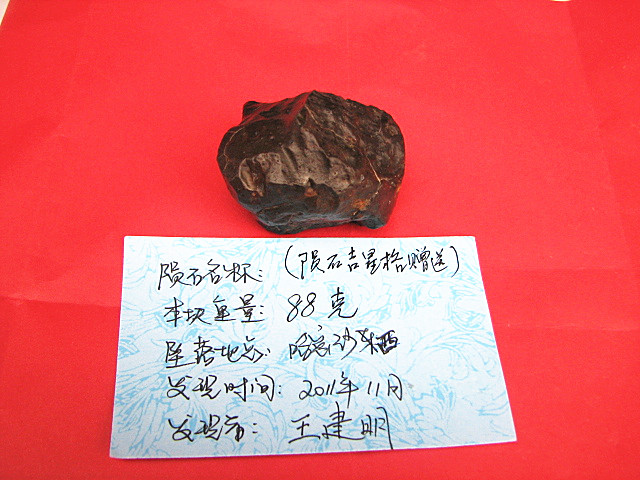 陨石名称：（陨石吉星格赠送）
本块重量：88克
坠落地点：沙
发现时间：2011年11月
发现者：王建明